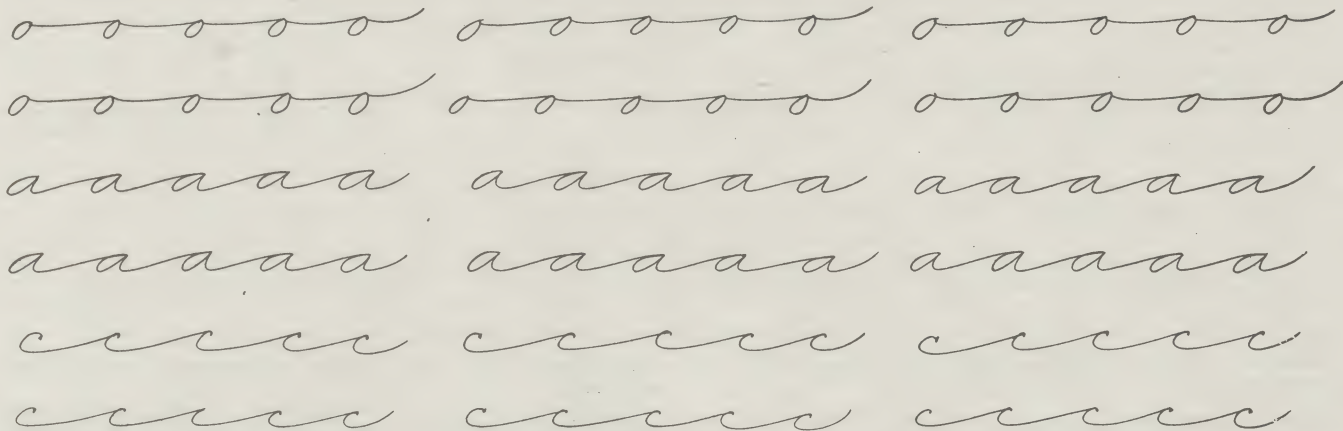 ooooo ooooo ooooo
ooooo ooooo ooooo
aaaaa aaaaa aaaaa
aaaaa aaaaa aaaaa
ccccc ccccc ccccc
ccccc ccccc ccccc